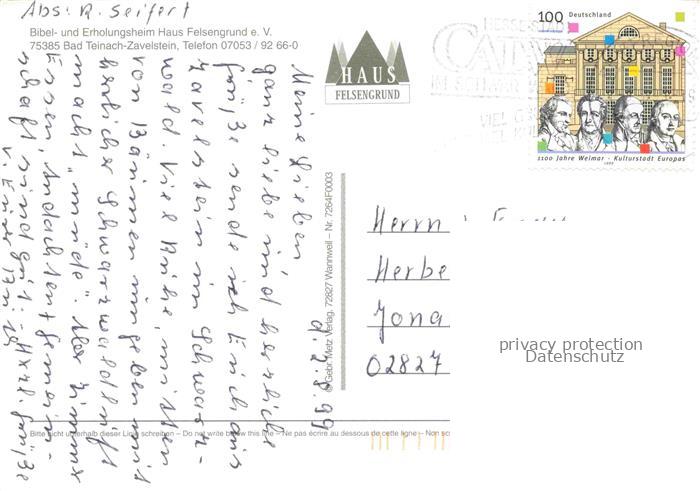 Abs: R. Seifert
Bibel- und Erholungsheim Haus Felsengrund e. V.
75385 Bad Teinach-Zavelstein, Telefon 07053 / 92 66-0
HAUS
FELSENGRUND
100 Deutschland
1100 Jahre Weimar - Kulturstadt Europas
1999
HESSE-STADT
CALW
VIEL
d. 2.8.99
Meine Lieben
ganz liebe und herzliche
Grüße sende ich Euch aus
Zavelstein im Schwarz-
wald. Viel Ruhe, mitten
von Bäumen umgeben mit
herrliche Schwarzwaldluft
macht "müde". Zimmer
Essen, Andachten + Gemein-
schaft sind gut. Herzl. Grüße
v. Eurer
© Gebr. Metz Verlag, 72827 Wannweil – Nr. 7264F0003
Herrn
Herbe
Jona
02827
privacy protection
Datenschutz
Bitte nicht unterhalb dieser Linie schreiben – Do not write below this line – Ne pas écrire au dessous de cette ligne – Non sc